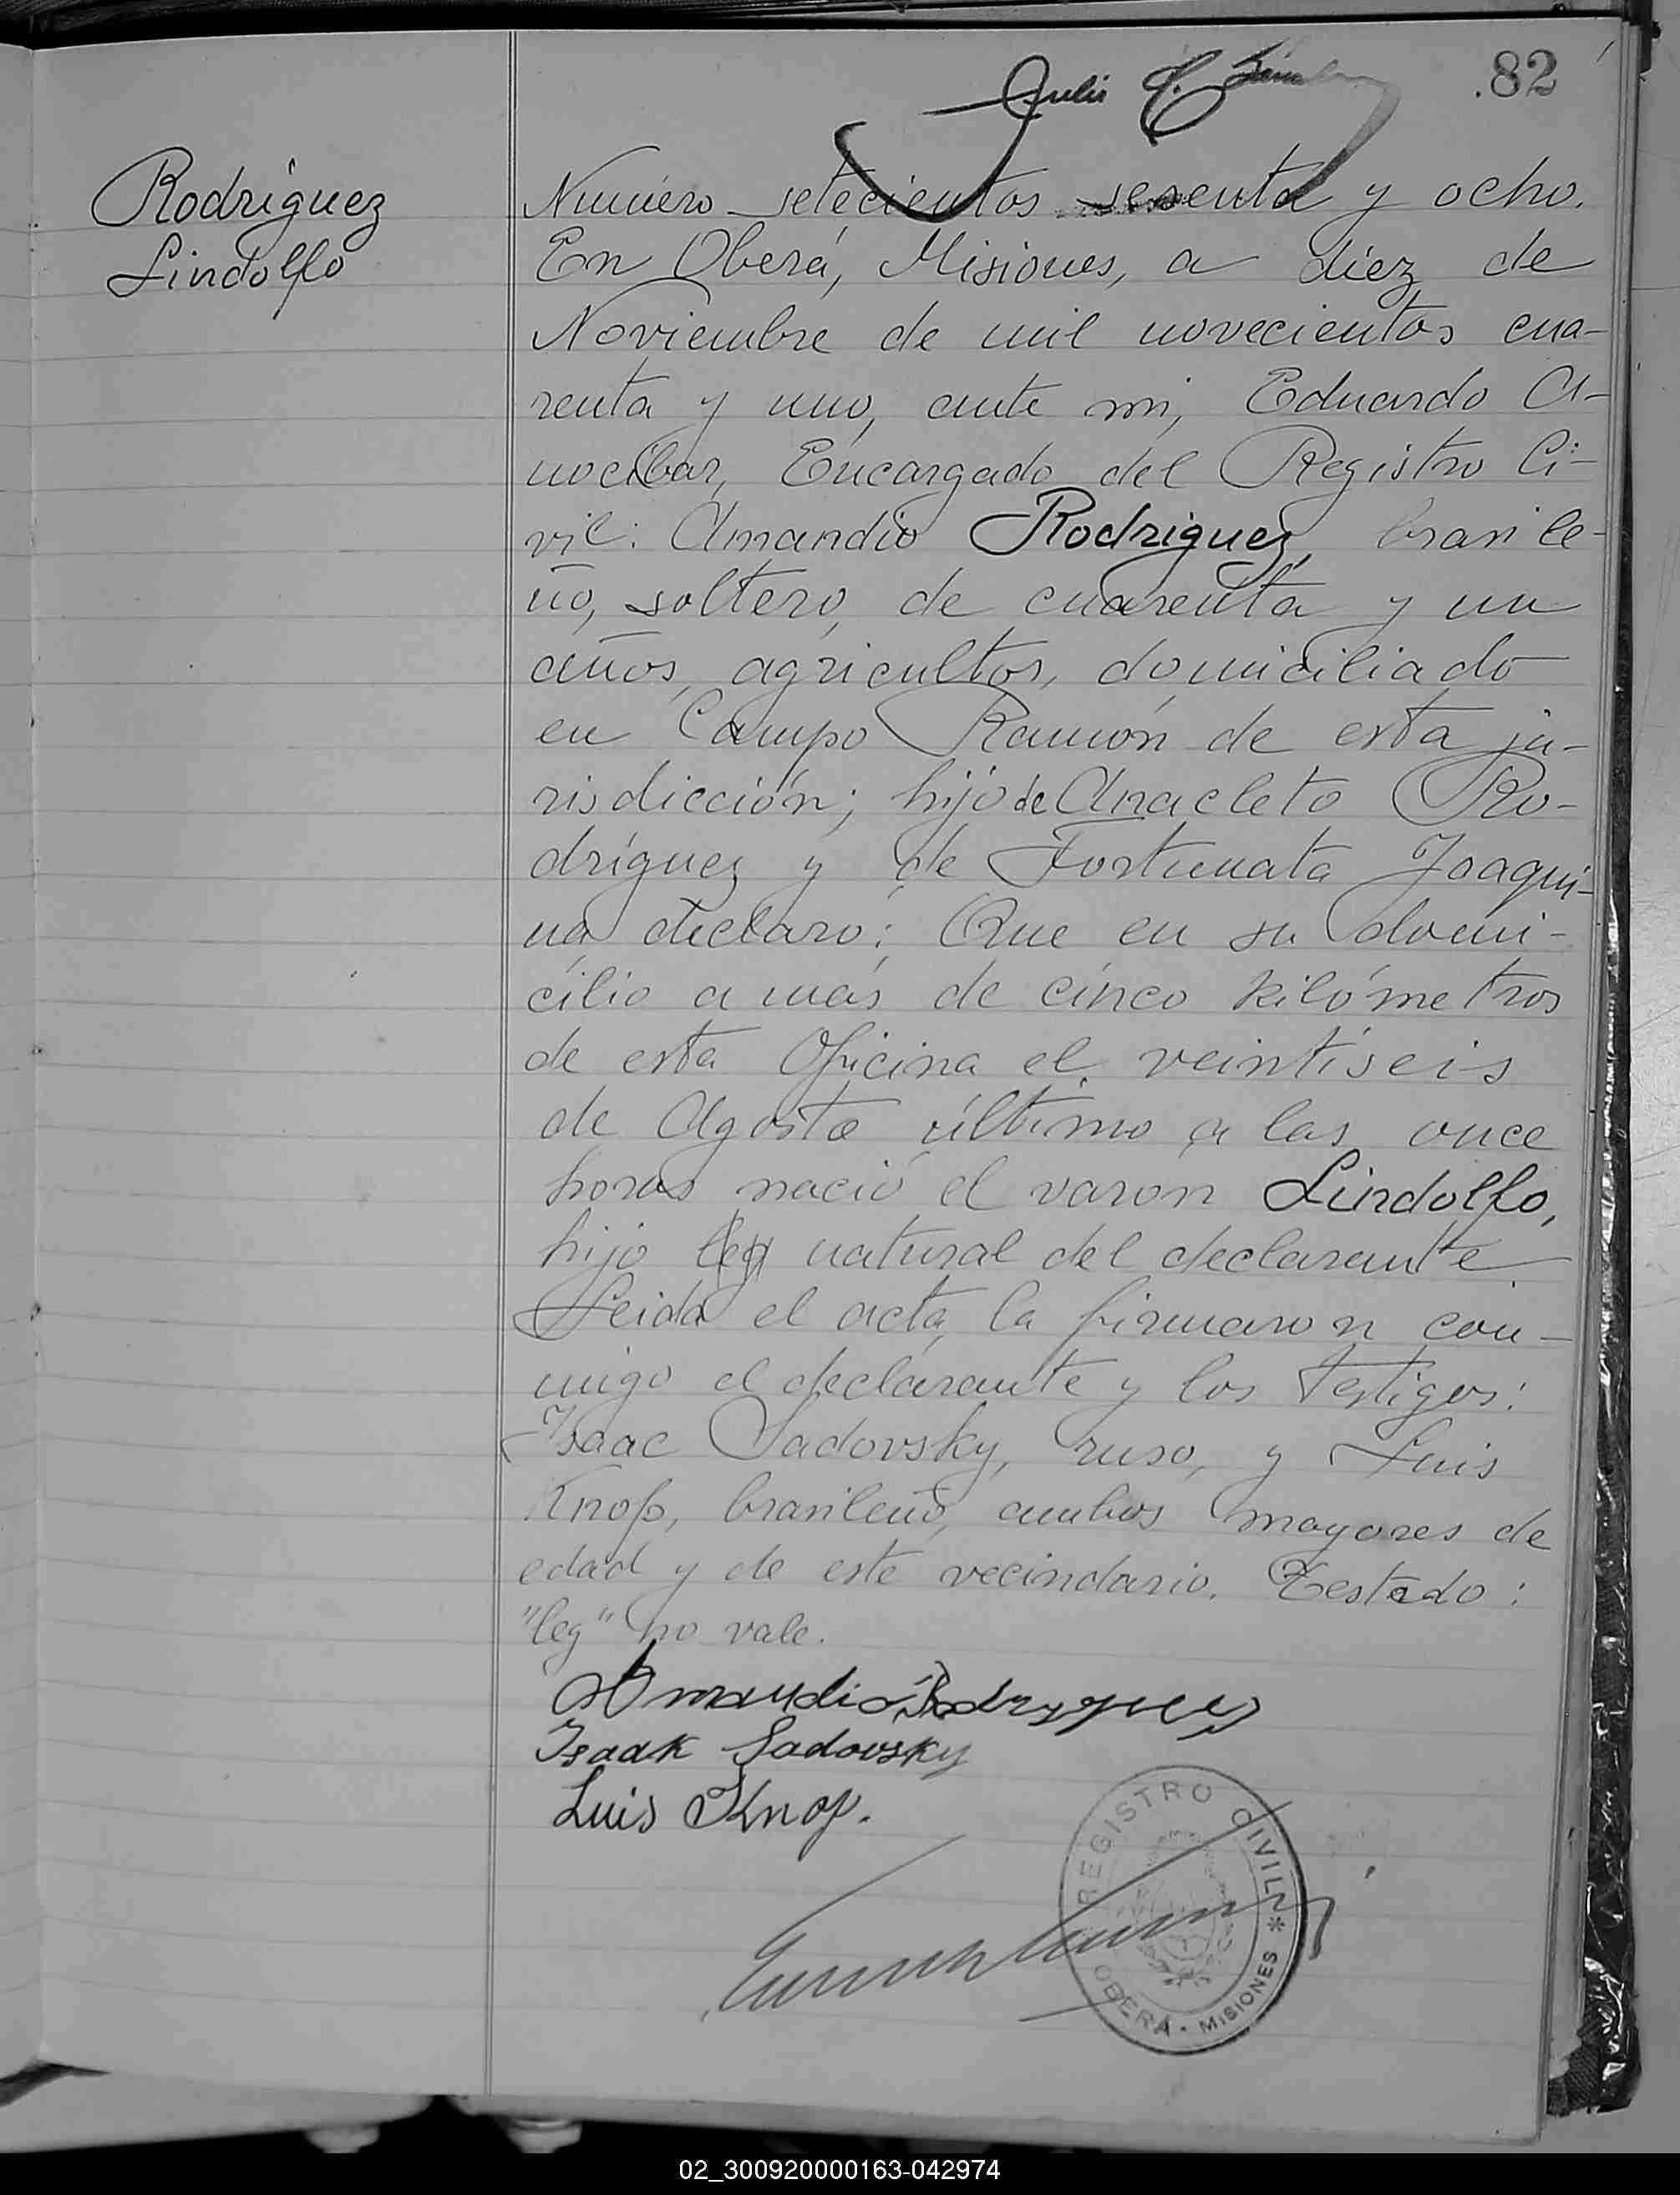 82
Julio
Rodríguez
Lindolfo
Número setecientos sesenta y ocho.
En Oberá, Misiones, a diez de
Noviembre de mil novecientos cua-
renta y uno, ante mi, Eduardo A-
nocibar, Encargado del Registro Ci-
vil: Amandio Rodriguez, brasile-
ño, soltero, de cuarenta y un
años, agricultor, domiciliado
en Campo Ramón de esta ju-
risdicción; hijo de Anacleto Ro-
dríguez y de Fortunata Joaqui-
na, declaró: Que en su domi-
cilio a más de cinco kilómetros
de esta Oficina el veintiseis
de Agosto último a las once
horas nació el varón Lindolfo,
hijo leg natural del declarante.
Leida el acta, la firmaron con-
migo el declarante y los testigos:
Isaac Sadovsky, ruso, y Luis
Knop, brasileño, ambos mayores de
edad y de este vecindario. Testado:
"leg" no vale.
Amandio Rodryguez
Isaak Sadovsky
Luis Knop.
REGISTRO CIVIL * OBERÁ - MISIONES
02_300920000163-042974